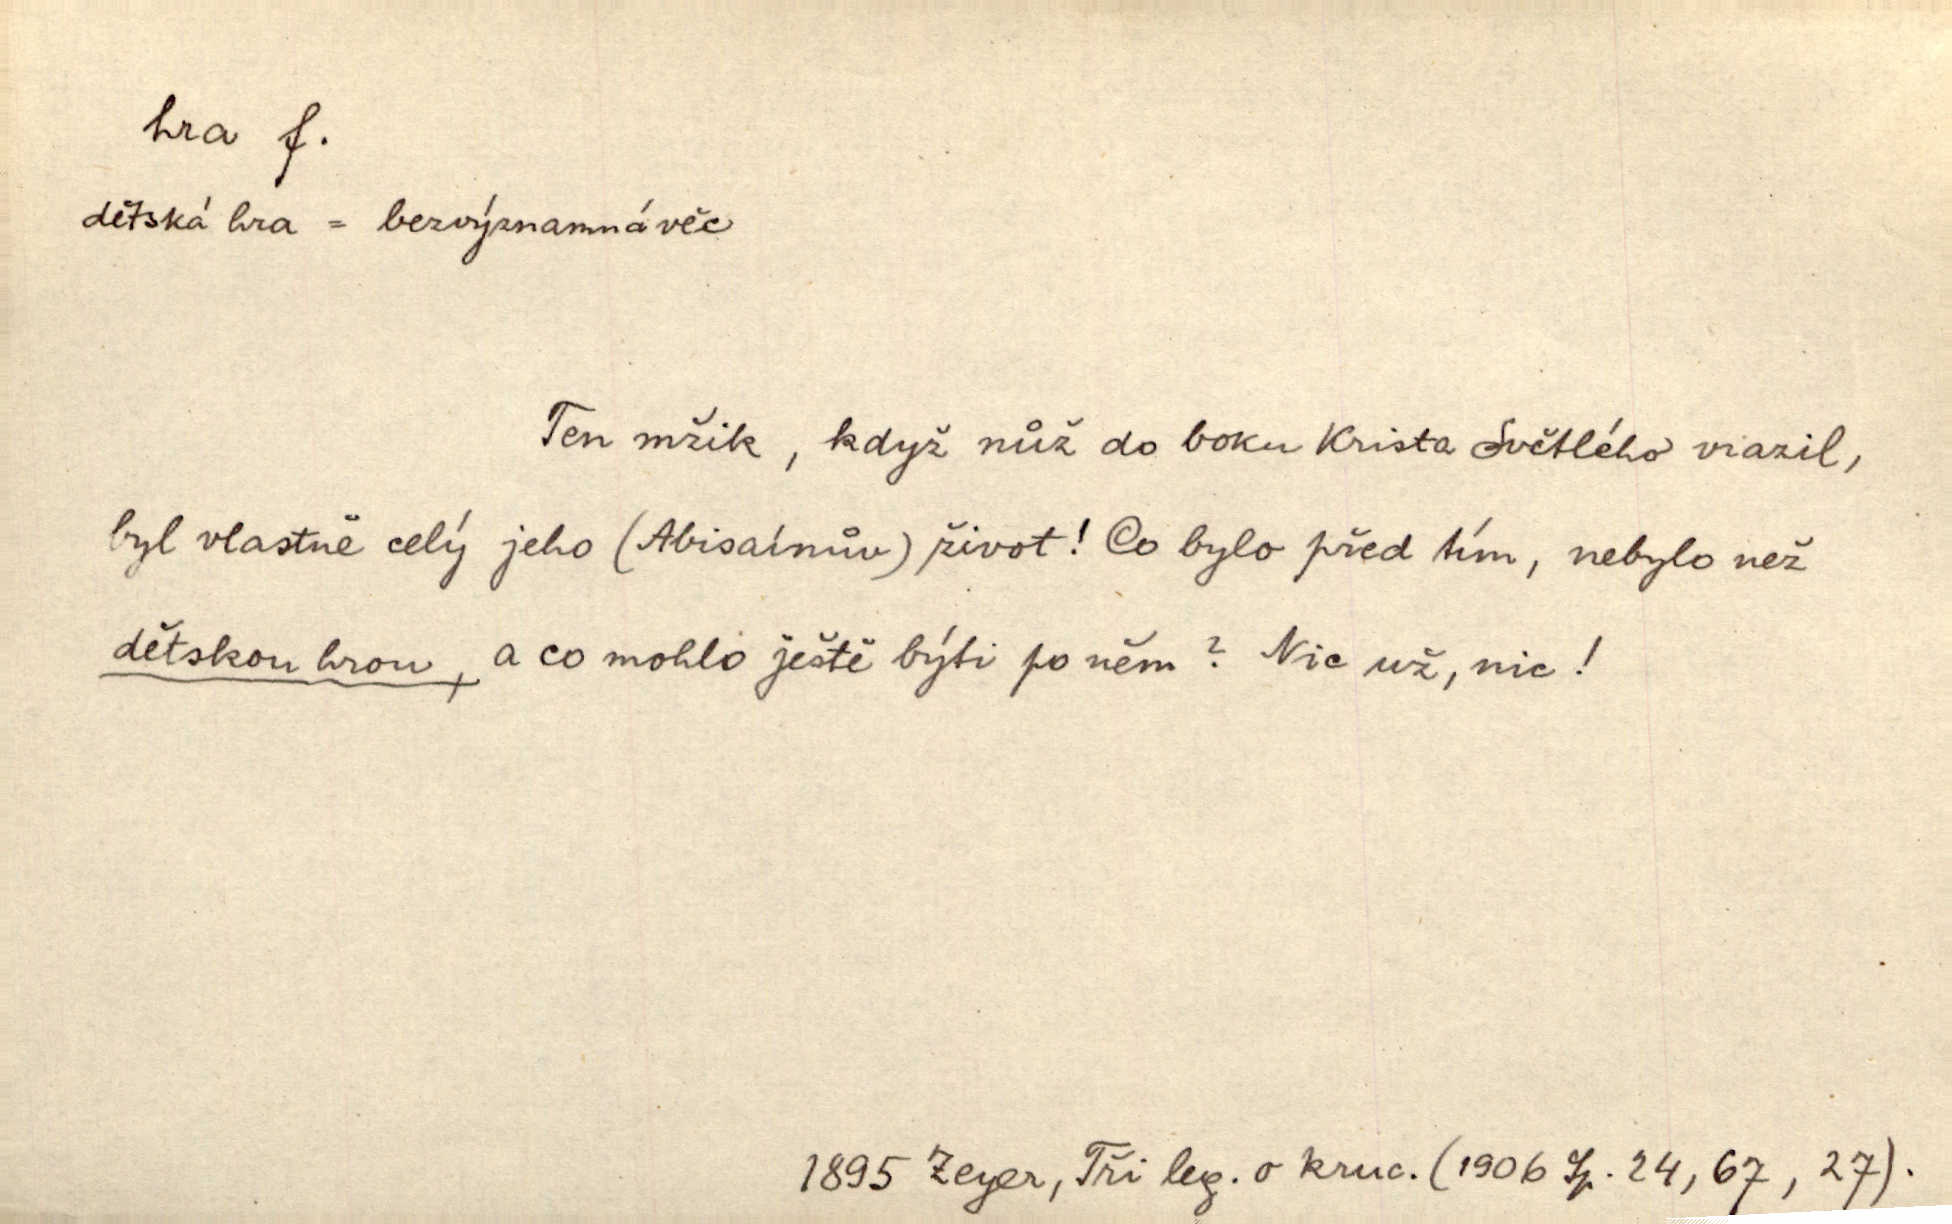 hra f.
dětská hra = bezvýznamná věc
Ten mžik, když nůž do boku Krista Světlého vrazil,
byl vlastně celý jeho (Abisaínův) život! Co bylo před tím, nebylo než
dětskou hrou, a co mohlo ještě býti po něm? Nic už, nic!
1895 Zeyer, Tři leg. o kruc. (1906 Sp. 24, 67, 27).